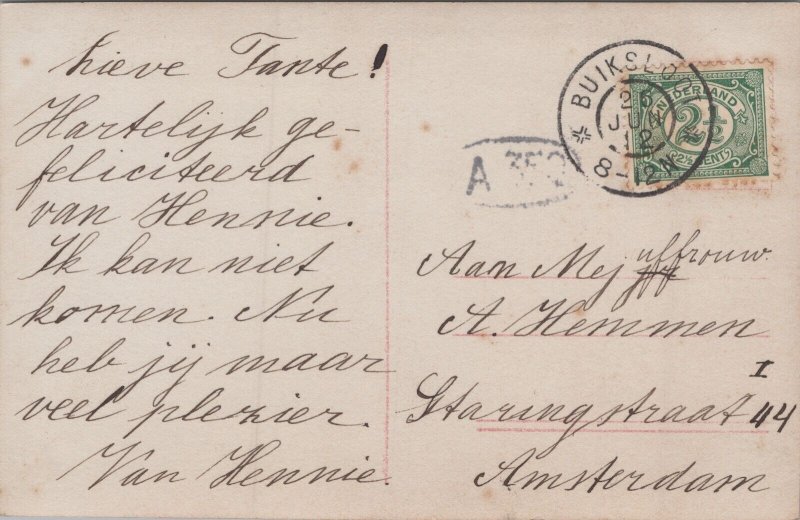 Lieve Tante!
Hartelijk ge-
feliciteerd
van Hennie.
Ik kan niet
komen. Nu
heb jij maar
veel plezier.
Van Hennie.
BUIKSL
2
JUL
12
8-12N
NEDERLAND
2½
2½ CENT
A
Aan Mejuffrouw.
A. Hemmen
I
Staringstraat 44
Amsterdam